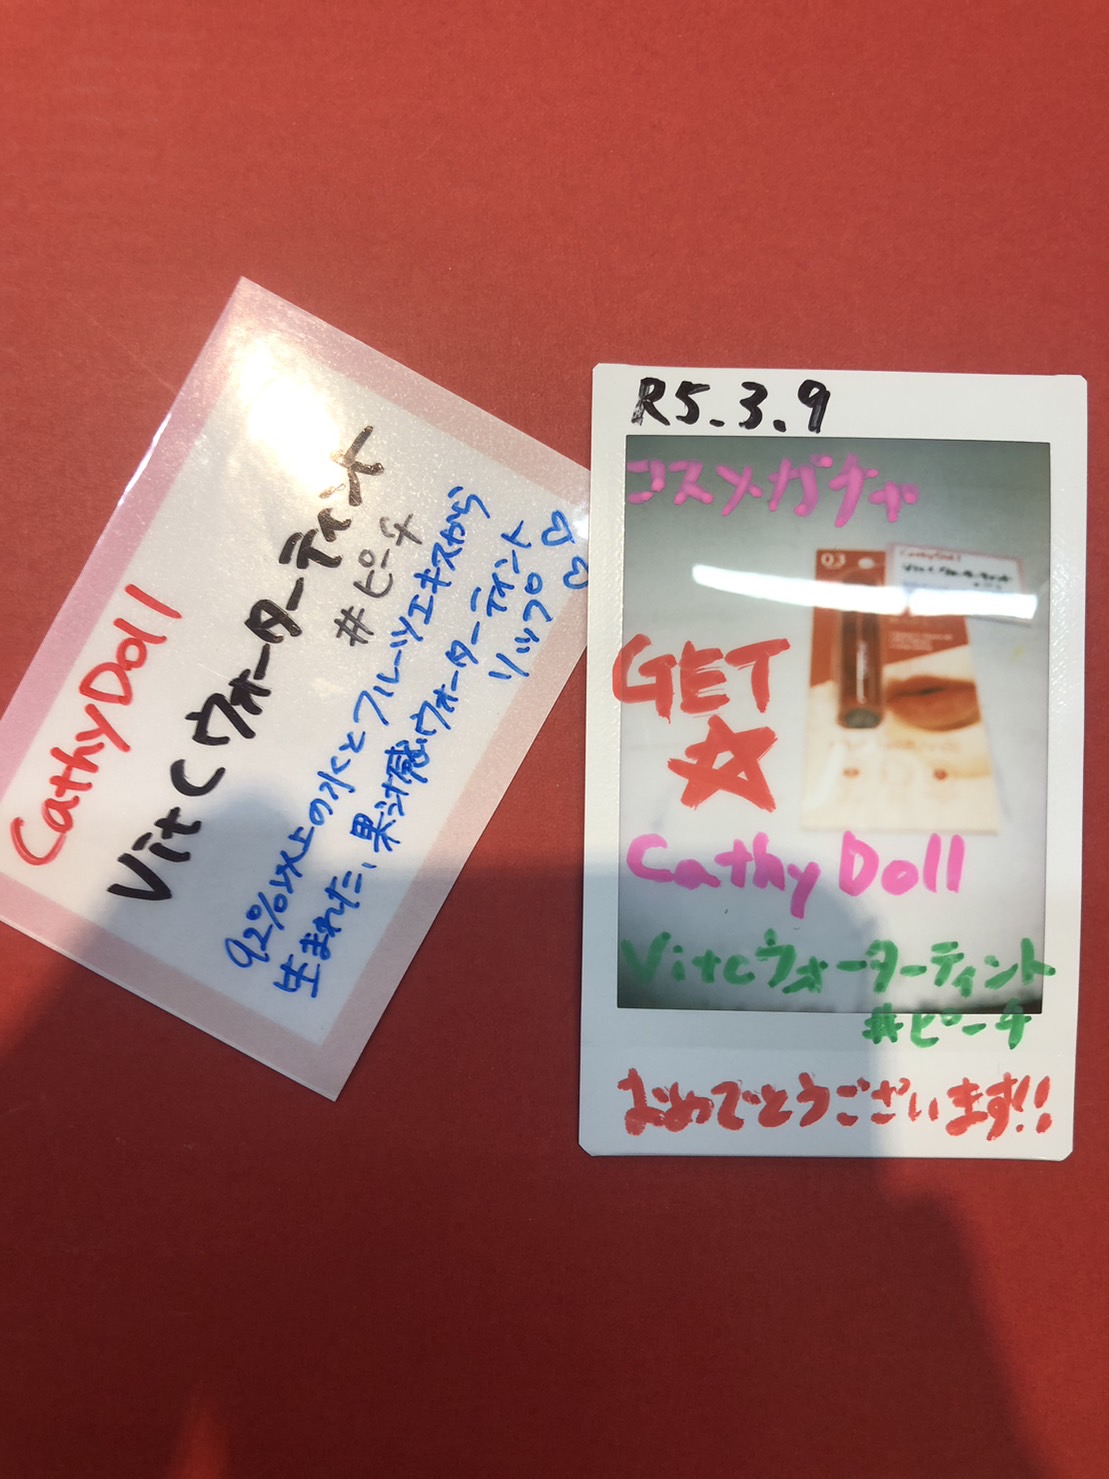 CathyDoll
Vit C ウォーターティント
#ピーチ
92%以上の水とフルーツエキスから
生まれた、果汁感ウォーターティント
リップ♡♡
R5.3.9
コスメガチャ
03
CathyDoll
Vit C ウォーターティント
GET
☆
Cathy Doll
Vitcウォーターティント
#ピーチ
おめでとうございます!!